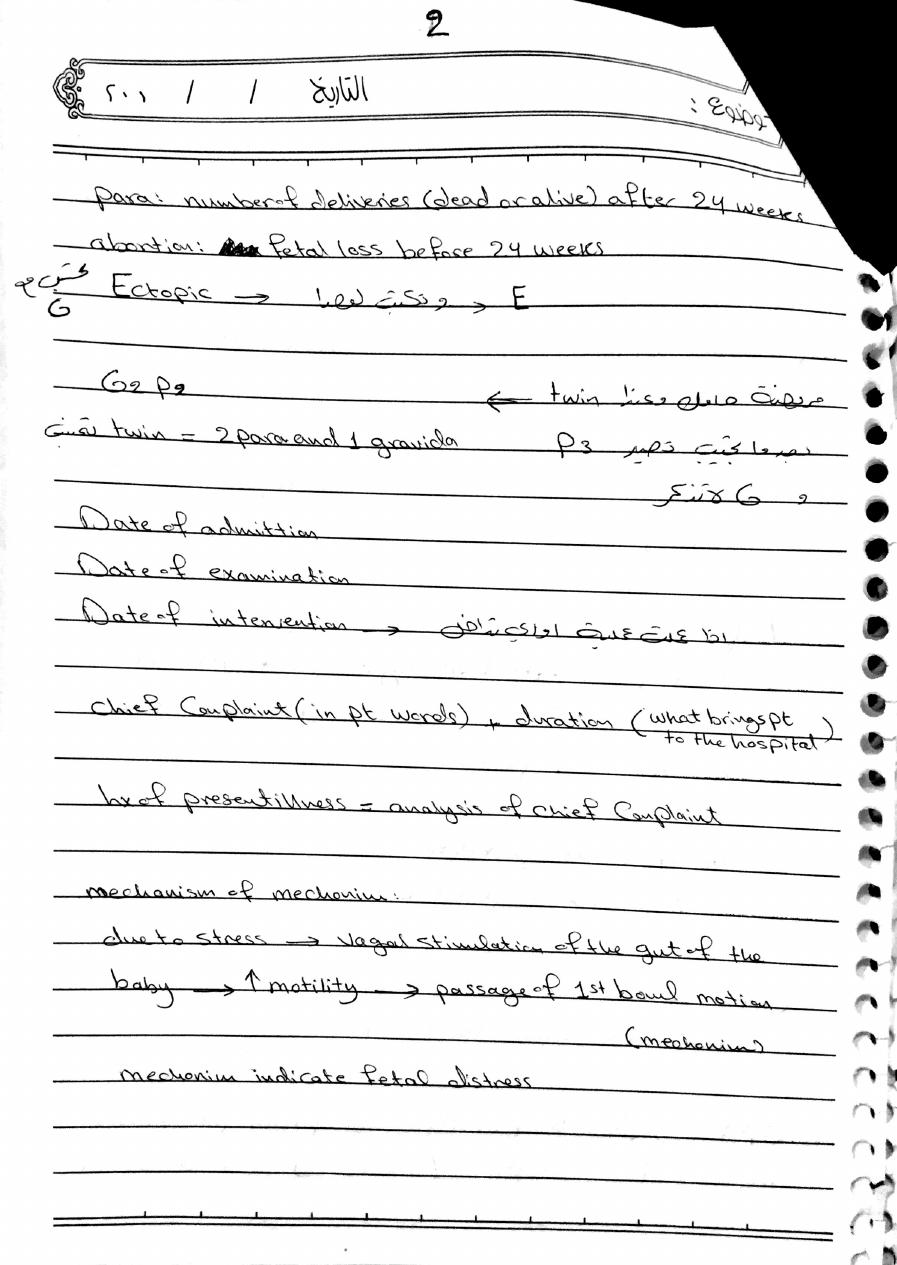 2
التاريخ / / ٢٠١
موضوع :
para: number of deliveries (dead or alive) after 24 weeks
abortion: fetal loss before 24 weeks
Ectopic → وتكتب لهما → E
G
G2 P2 ← twin مريضة حامل وعندها
twin = 2 para and 1 gravida
بعدها كتبت تصير P3
و G لا تتذكر
Date of admittion
Date of examination
Date of intervention → اذا عملت عملية او اي تداخل
chief Complaint (in pt words) + duration (what brings pt to the hospital)
hx of present illness = analysis of chief Complaint
mechanism of mechonium:
due to stress → vagal stimulation of the gut of the
baby → ↑ motility → passage of 1st bowl motion
(mechonium)
mechonium indicate fetal distress